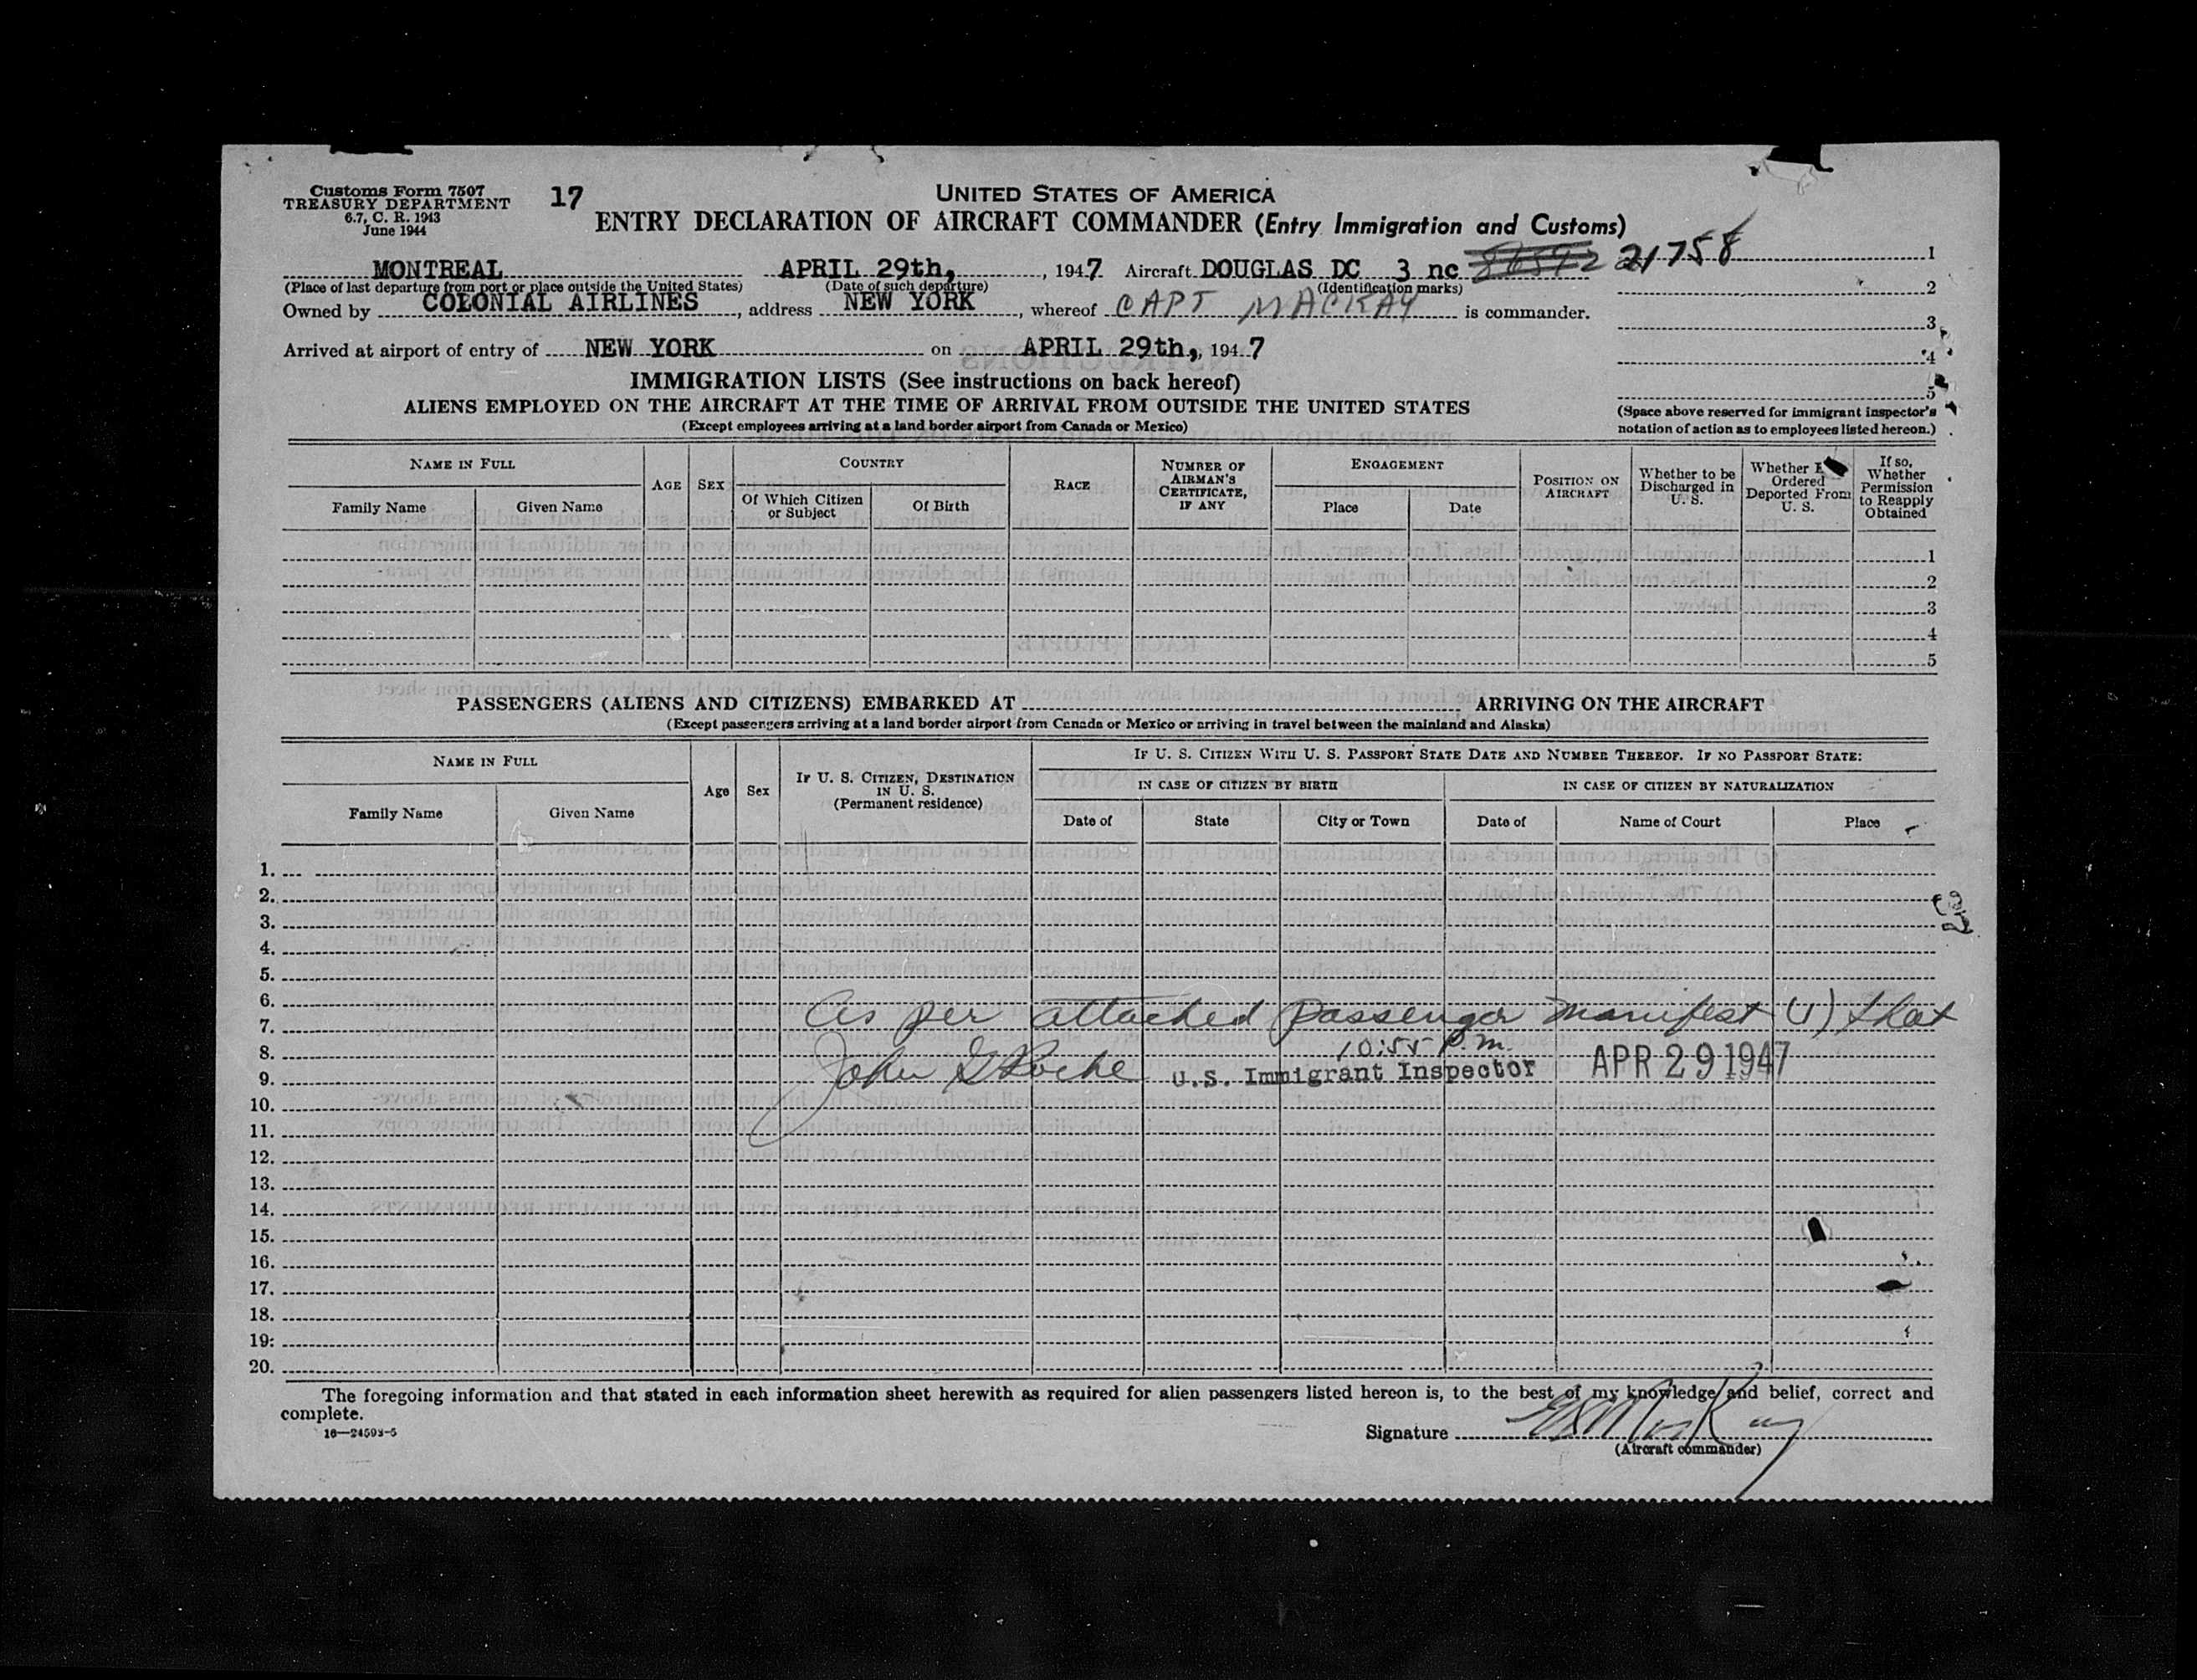 Customs Form 7507
TREASURY DEPARTMENT
6.7, C. R. 1943
June 1944
17
UNITED STATES OF AMERICA
ENTRY DECLARATION OF AIRCRAFT COMMANDER (Entry Immigration and Customs)
MONTREAL APRIL 29th, , 1947 Aircraft DOUGLAS DC 3 nc 21758 1
(Place of last departure from port or place outside the United States) (Date of such departure) (Identification marks) 2
Owned by COLONIAL AIRLINES, address NEW YORK, whereof CAPT MACKAY is commander. 3
Arrived at airport of entry of NEW YORK on APRIL 29th, , 1947 4
IMMIGRATION LISTS (See instructions on back hereof) 5
ALIENS EMPLOYED ON THE AIRCRAFT AT THE TIME OF ARRIVAL FROM OUTSIDE THE UNITED STATES
(Except employees arriving at a land border airport from Canada or Mexico)
(Space above reserved for immigrant inspector's
notation of action as to employees listed hereon.)
NAME IN FULL
Family Name Given Name
AGE SEX
COUNTRY
Of Which Citizen or Subject Of Birth
RACE
NUMBER OF AIRMAN'S CERTIFICATE, IF ANY
ENGAGEMENT
Place Date
POSITION ON AIRCRAFT
Whether to be Discharged in U. S.
Whether Ordered Deported From U. S.
If so, Whether Permission to Reapply Obtained
1
2
3
4
5
PASSENGERS (ALIENS AND CITIZENS) EMBARKED AT ARRIVING ON THE AIRCRAFT
(Except passengers arriving at a land border airport from Canada or Mexico or arriving in travel between the mainland and Alaska)
NAME IN FULL
Family Name Given Name
Age Sex
IF U. S. CITIZEN, DESTINATION IN U. S.
(Permanent residence)
IF U. S. CITIZEN WITH U. S. PASSPORT STATE DATE AND NUMBER THEREOF. IF NO PASSPORT STATE:
IN CASE OF CITIZEN BY BIRTH IN CASE OF CITIZEN BY NATURALIZATION
Date of State City or Town Date of Name of Court Place
1.
2.
3.
4.
5.
6.
7. As per attached passenger manifest (1)
8. 10:55 P.m.
9. John Roche U.S. Immigrant Inspector APR 29 1947
10.
11.
12.
13.
14.
15.
16.
17.
18.
19.
20.
The foregoing information and that stated in each information sheet herewith as required for alien passengers listed hereon is, to the best of my knowledge and belief, correct and
complete.
16—24593-5
Signature
(Aircraft commander)